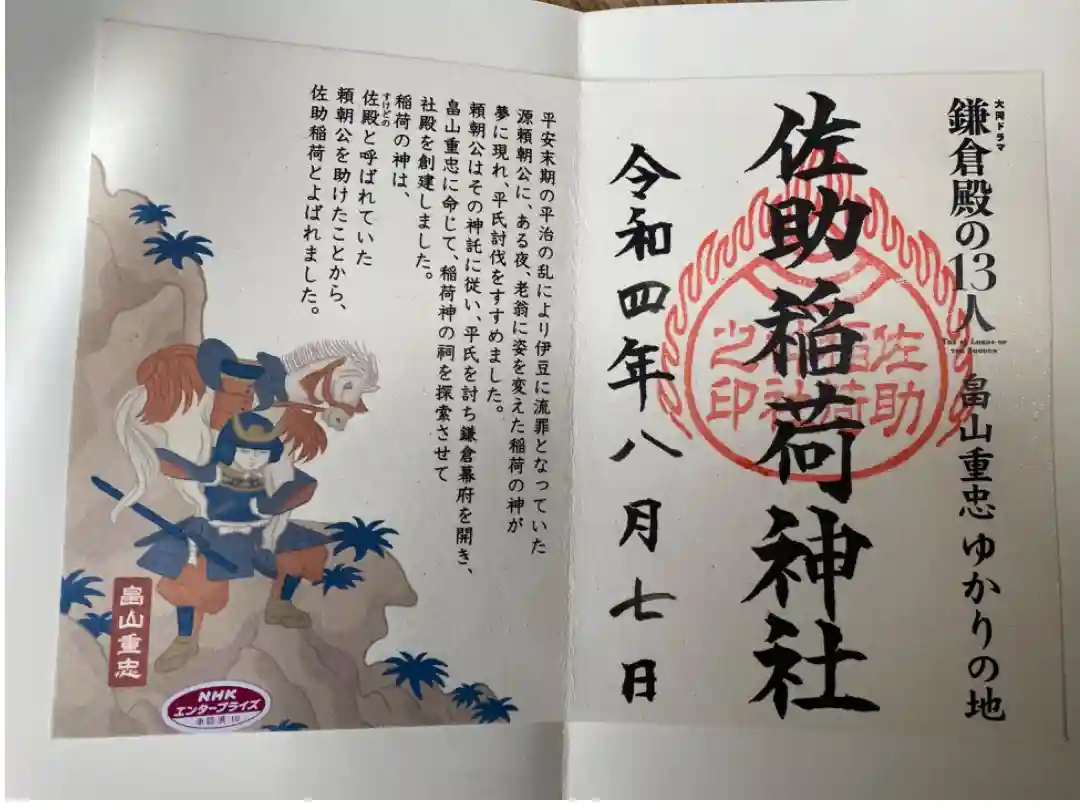 大河ドラマ
鎌倉殿の13人
畠山重忠 ゆかりの地
佐助稲荷神社
佐助
稲荷
神社
之印
令和四年八月七日
平安末期の平治の乱により伊豆に流罪となっていた
源頼朝公に、ある夜、老翁に姿を変えた稲荷の神が
夢に現れ、平氏討伐をすすめました。
頼朝公はその神託に従い、平氏を討ち鎌倉幕府を開き、
畠山重忠に命じて、稲荷神の祠を探索させて
社殿を創建しました。
稲荷の神は、
すけどの
佐殿と呼ばれていた
頼朝公を助けたことから、
佐助稲荷とよばれました。
畠山重忠
NHK
エンタープライズ